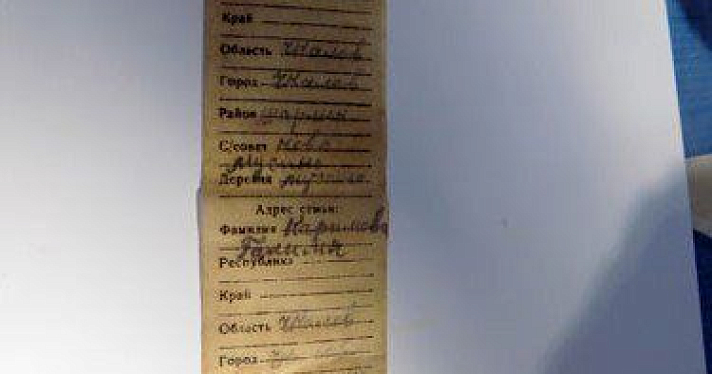 Край
Область Чкалов
Город Чкалов
Район Шарлык
С/совет Ново
Мусино
Деревня Мусино
Адрес семьи:
Фамилия Каримова
Галия
Республика
Край
Область Чкалов
Город